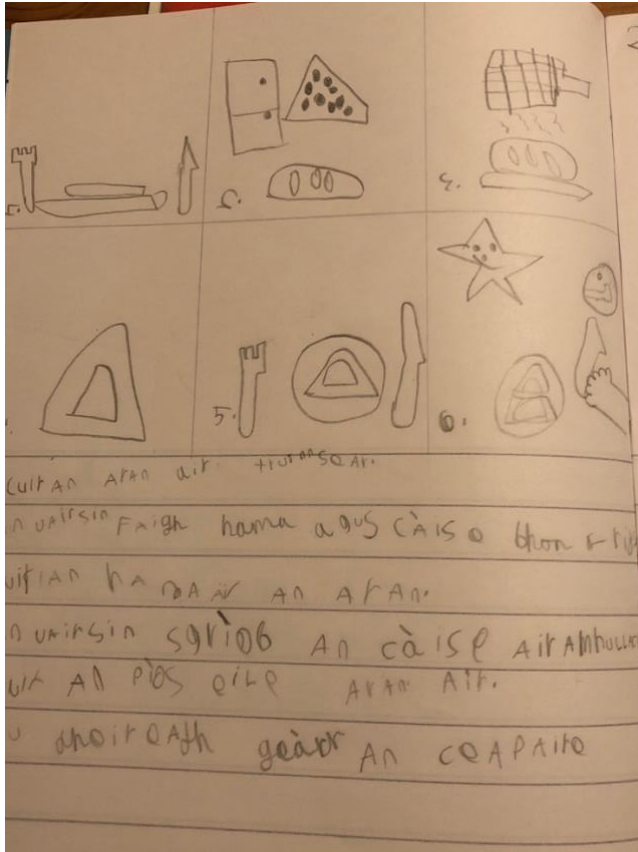 2
1.
2.
3.
5.
6.
Cuir An Aran air truinnsear.
n uAirsin FAigh hama agus CÀISe bhon
uir an hAmA Air An ArAn.
n uAirsin sgrìob An càise Air Amhullac
uir An Pìos eile ArAn Air.
u dheireAdh geàrr An ceApAire